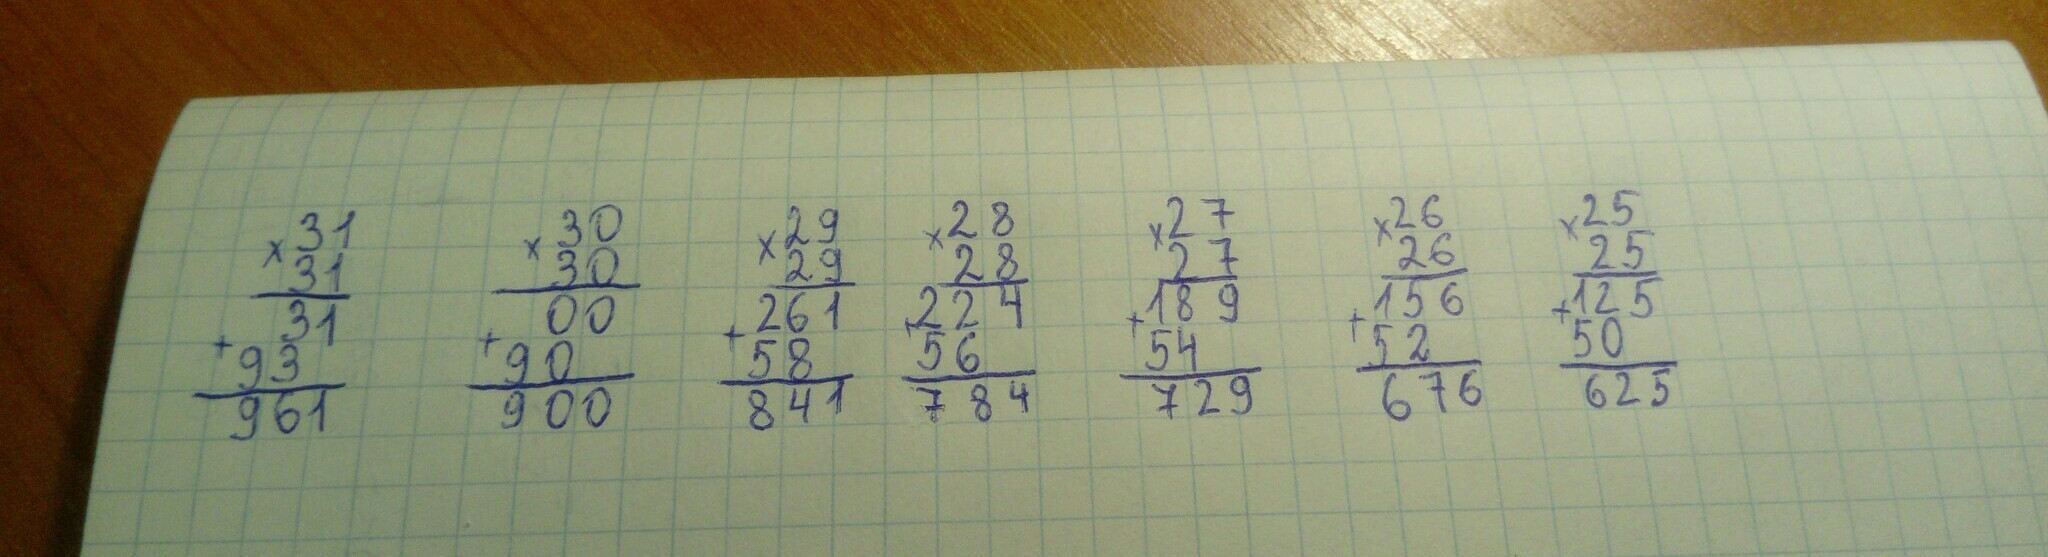 ×31
31
31
+93
961
×30
30
00
+90
900
×29
29
261
+58
841
×28
28
224
+56
784
×27
27
+189
54
729
×26
26
+156
52
676
×25
25
+125
50
625